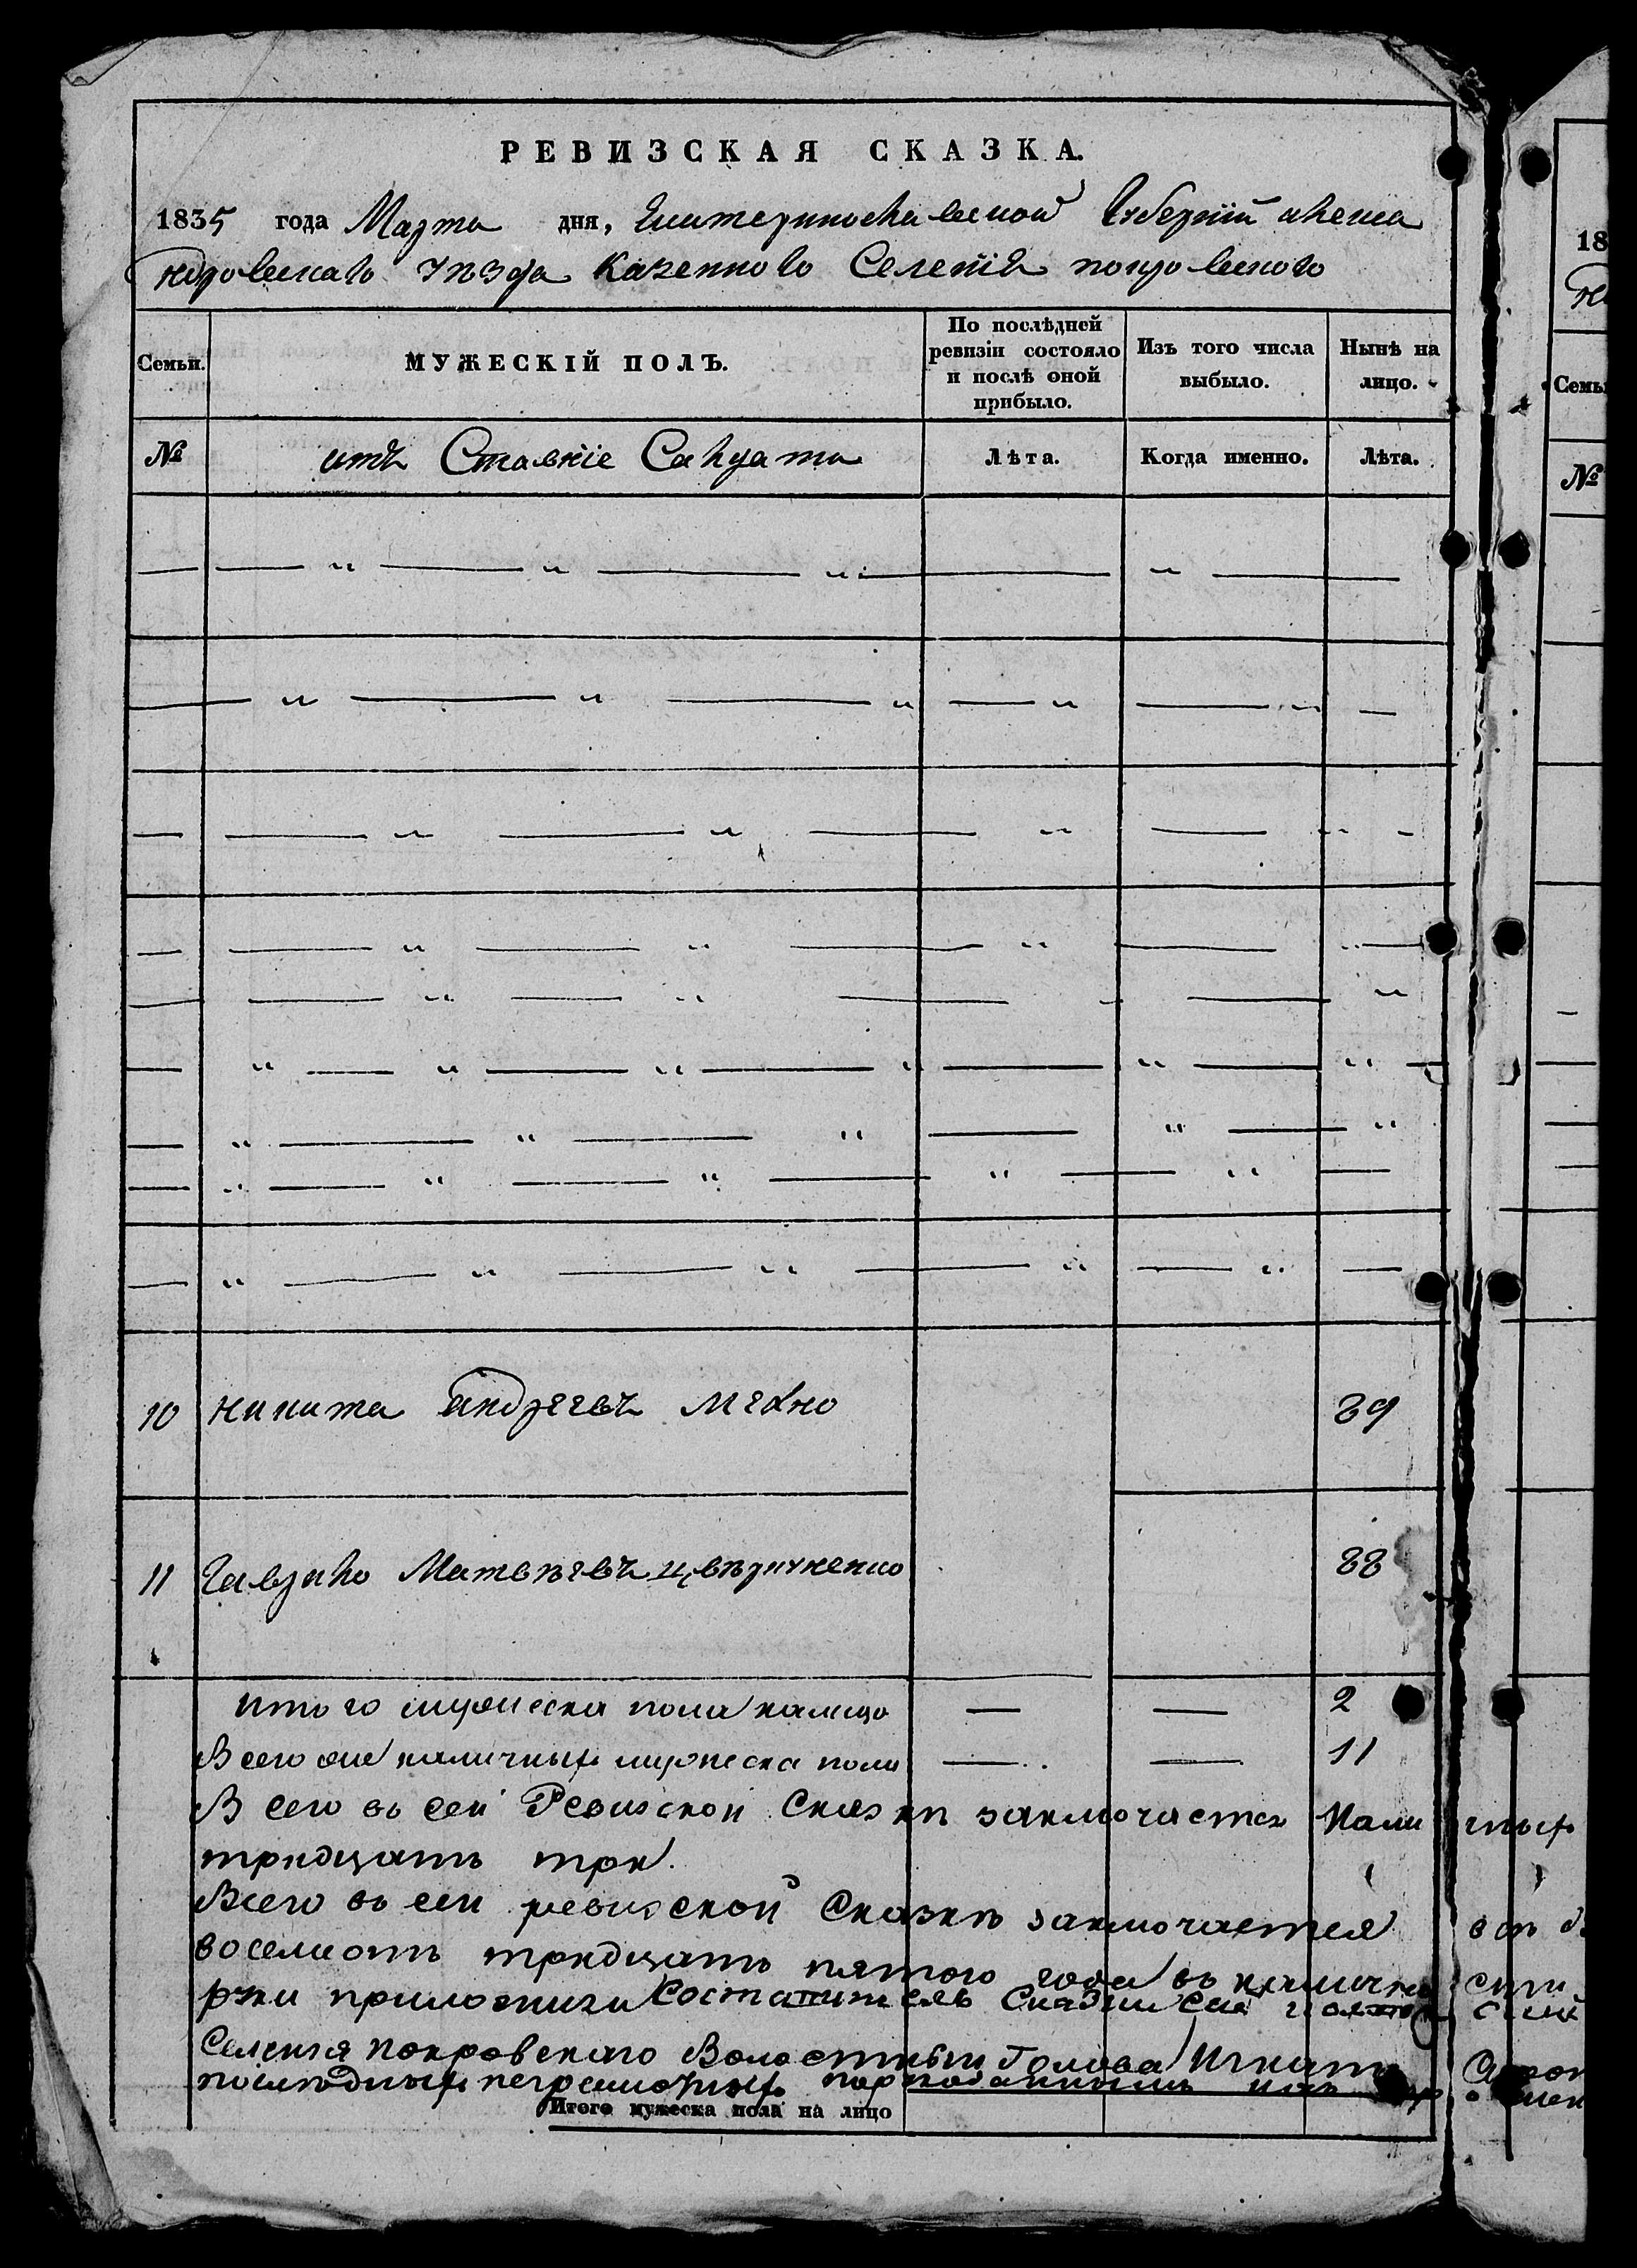 РЕВИЗСКАЯ СКАЗКА.
1835 года Марта дня, Екатеринославской Губернїи алекса
ндровскаго уѣзда Казенного Селенїя покровского
Семьи.
МУЖЕСКІЙ ПОЛЪ.
По послѣдней ревизіи состояло и послѣ оной прибыло.
Изъ того числа выбыло.
Нынѣ на лицо.
№
отъ Ставкїе Салдата
Лѣта.
Когда именно.
Лѣта.
10 никита андреевъ Махно 89
11 Гаврило Матвѣевъ 88
итого мужеска пола налицо — — 2
Всего оне наличныхъ мужеска пола — — 11
Всего въ сей Ревизской Сказкѣ заключается Нали чныхъ
тридцать три.
Всего въ сей ревизской Сказкѣ заключается
восемсотъ тридцать пятого года въ налично сти
руки приложили Составитель Сказки
Селения покровскаго Волостный Голова Игнатъ
Итого мужеска пола на лицо
18
Семьи
№